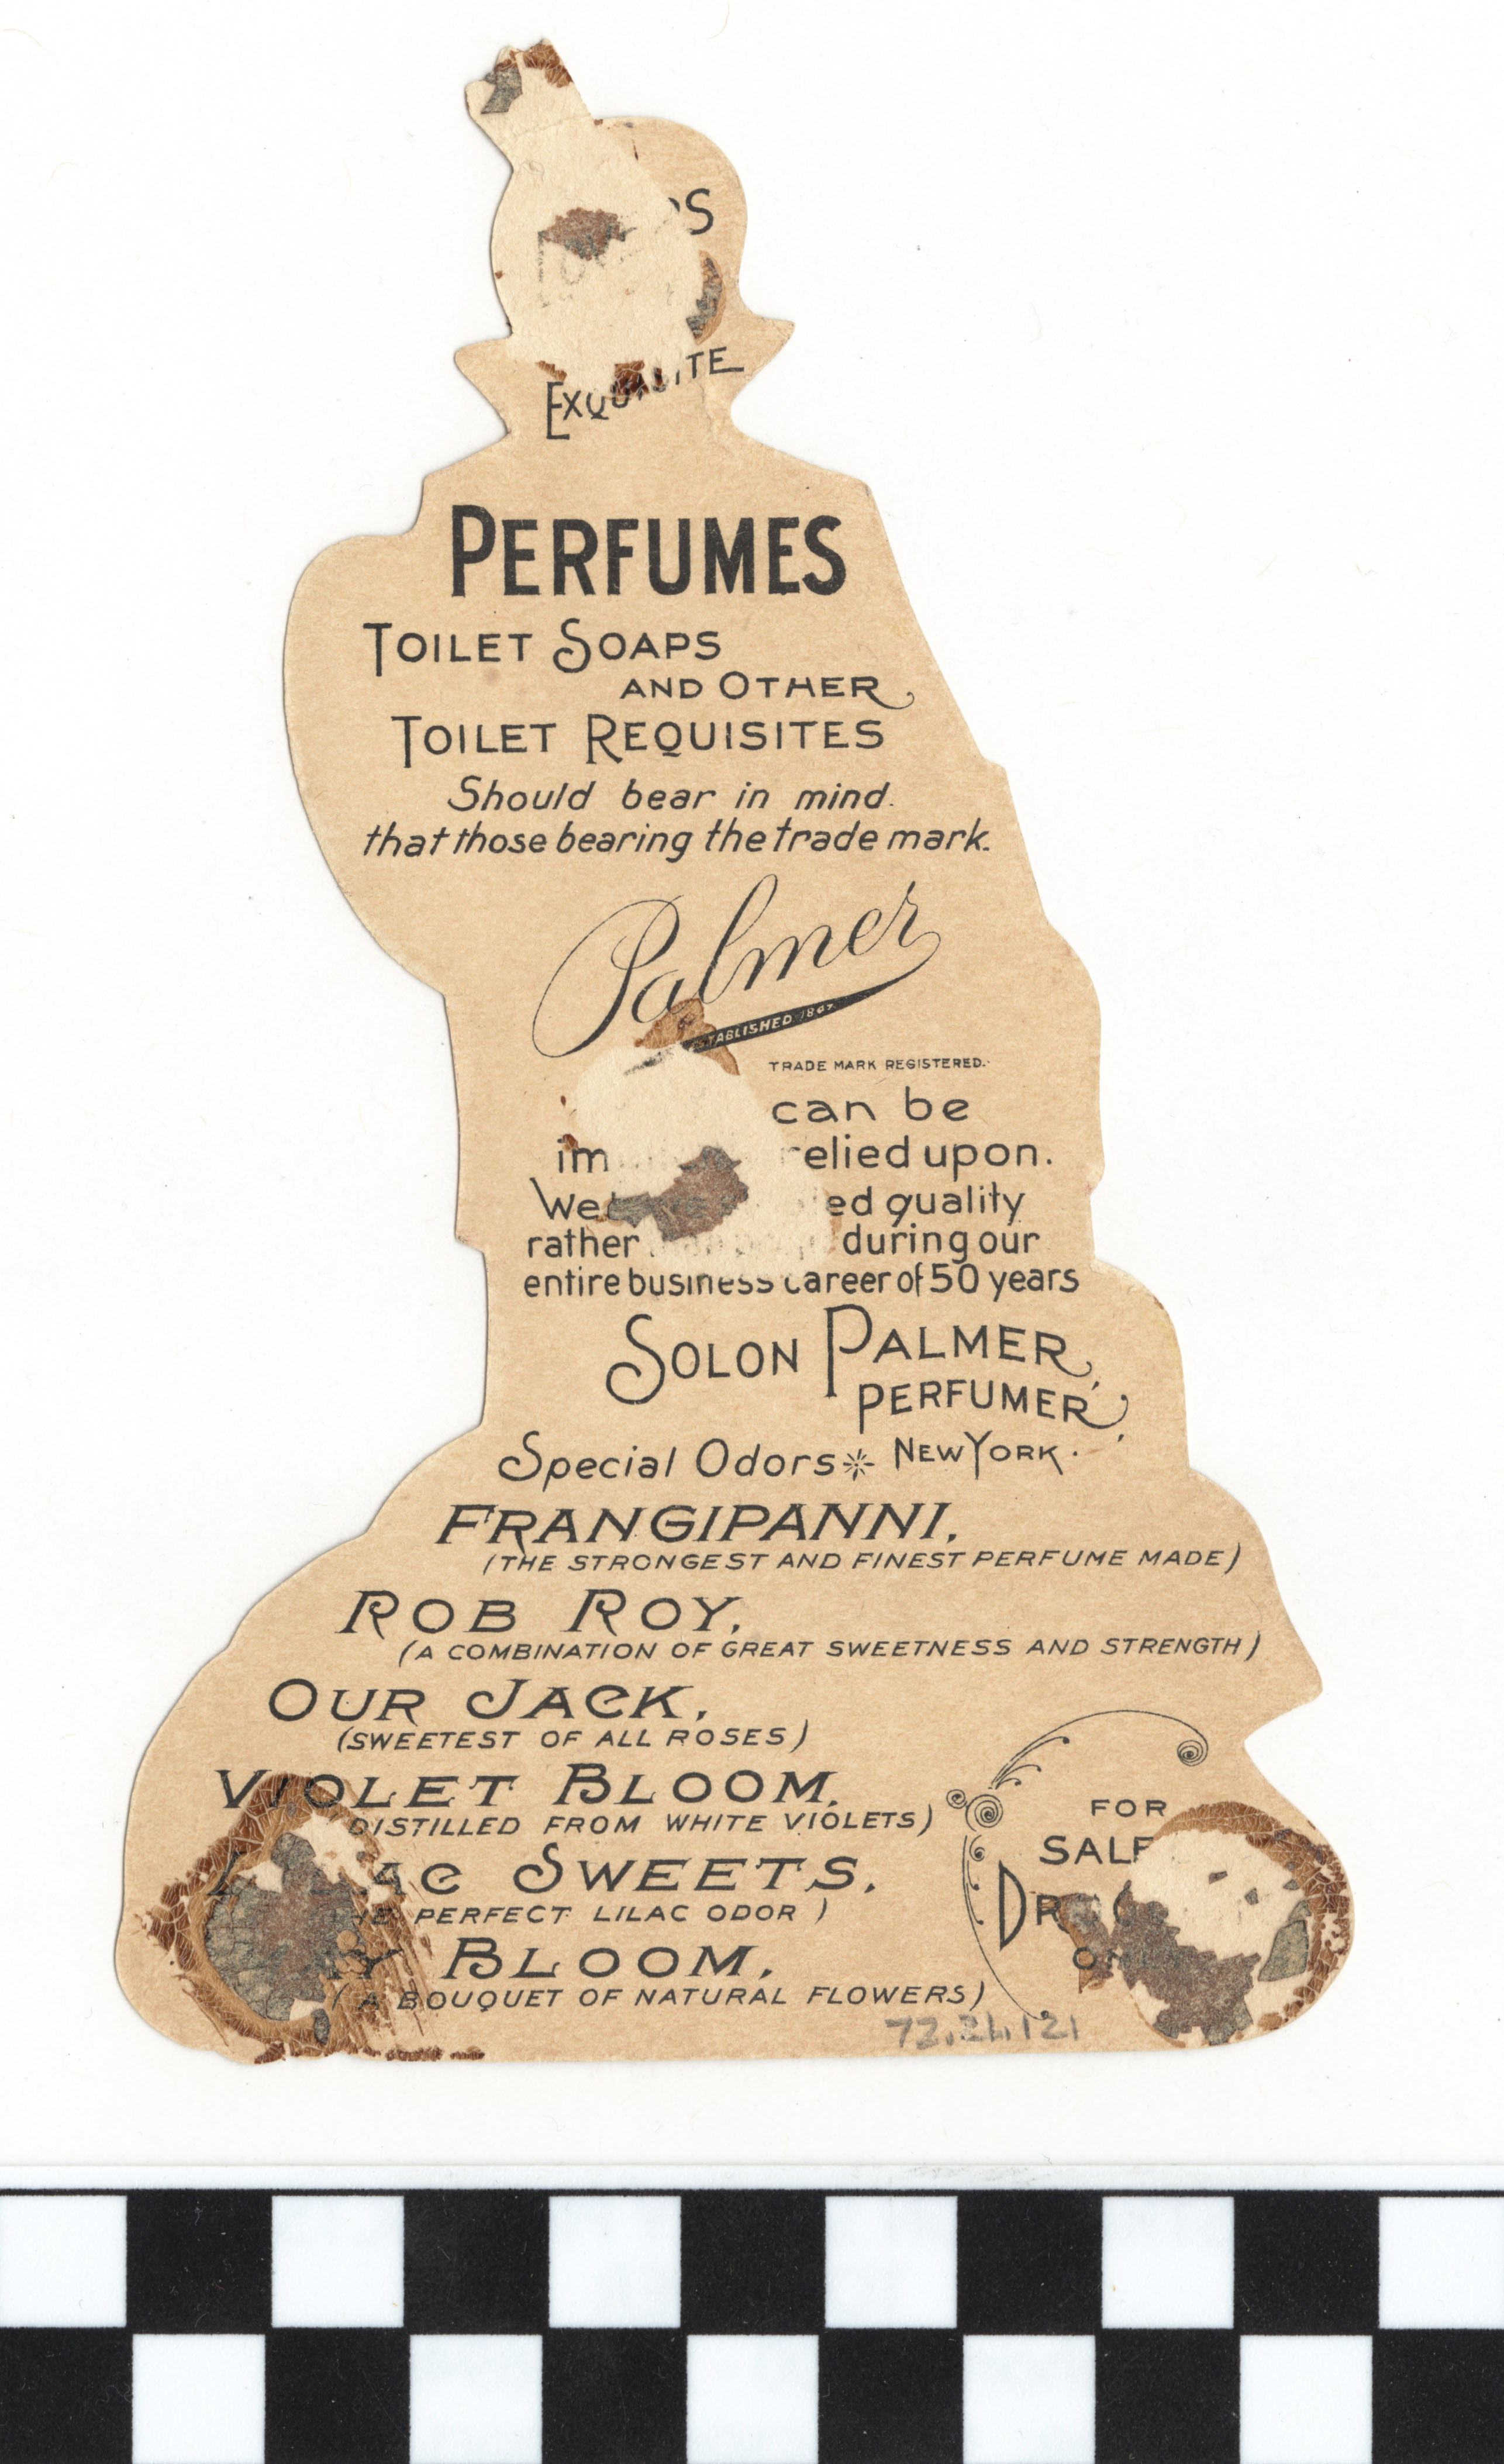 EXQUISITE
PERFUMES
TOILET SOAPS
AND OTHER
TOILET REQUISITES
Should bear in mind.
that those bearing the trade mark.
Palmer
ESTABLISHED 1847
TRADE MARK REGISTERED.
can be
upon.
We quality
rather during our
entire business career of 50 years
SOLON PALMER,
PERFUMER,
NEW YORK.
Special Odors
FRANGIPANNI.
(THE STRONGEST AND FINEST PERFUME MADE)
ROB ROY,
(A COMBINATION OF GREAT SWEETNESS AND STRENGTH)
OUR JACK,
(SWEETEST OF ALL ROSES)
VIOLET BLOOM.
DISTILLED FROM WHITE VIOLETS)
SWEETS,
PERFECT LILAC ODOR)
BLOOM,
(A BOUQUET OF NATURAL FLOWERS)
FOR
72.21.121